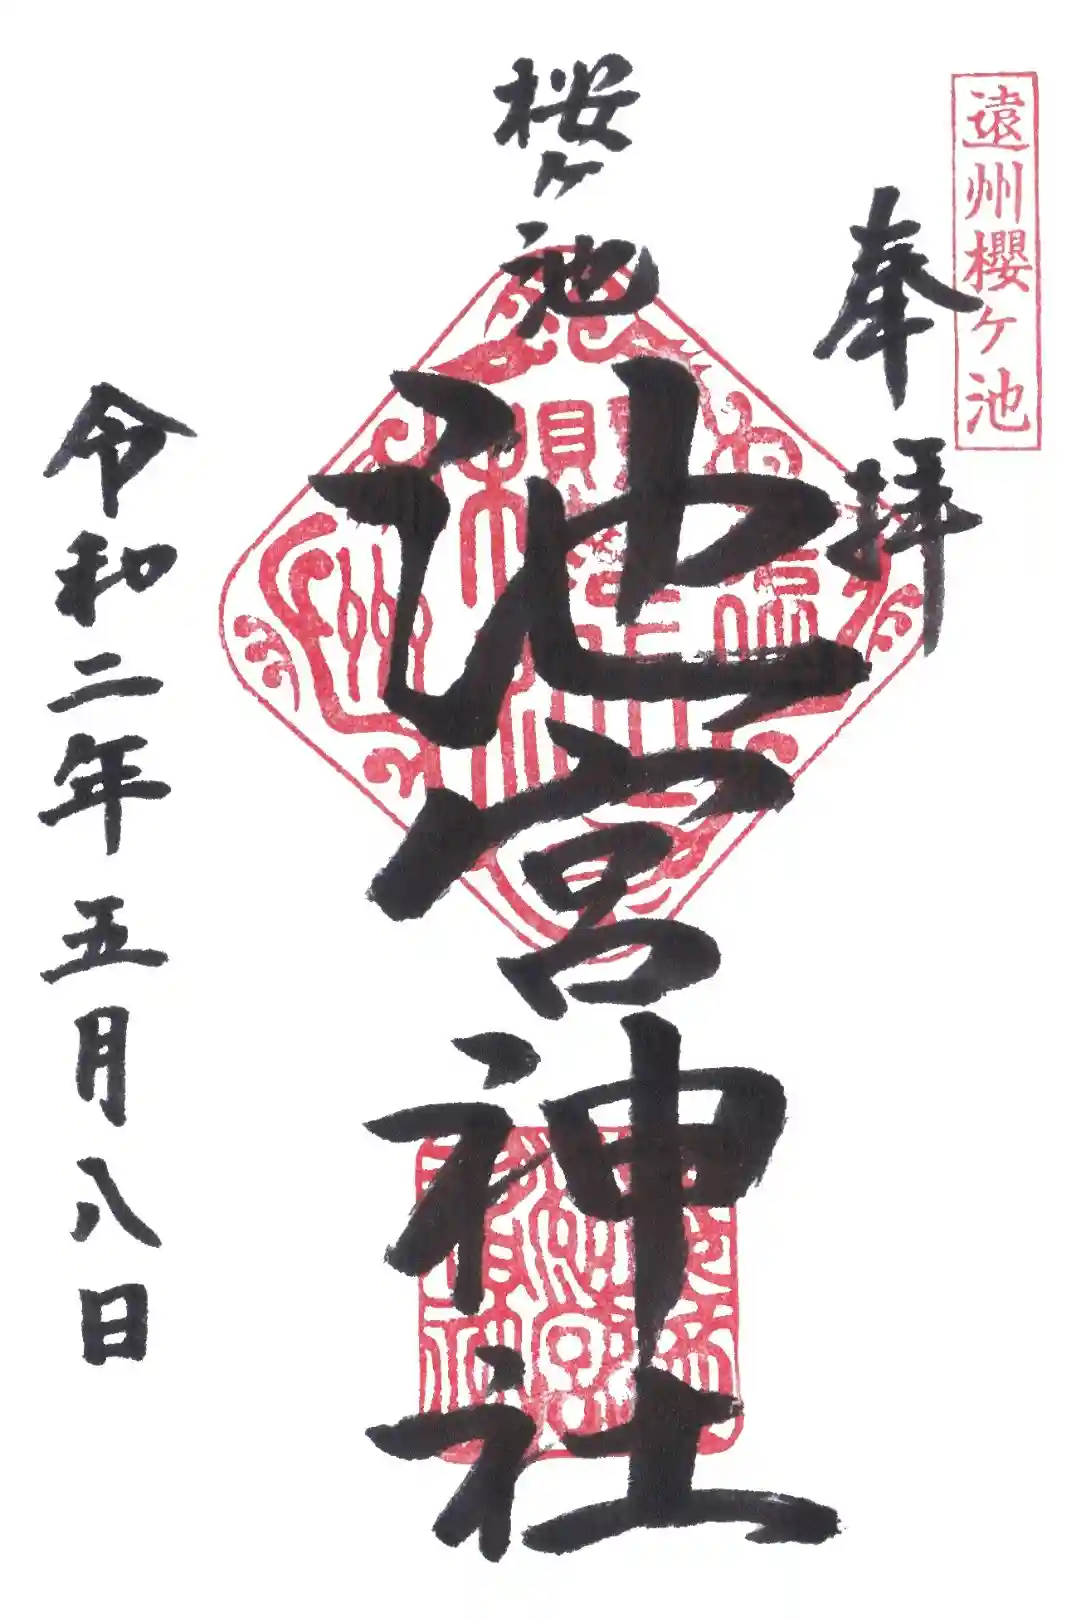 遠州櫻ヶ池
奉拝
桜ヶ池
池宮神社
令和二年五月八日